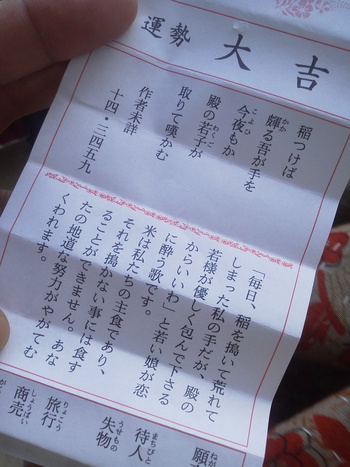 運勢 大吉
稲つけば
皹る吾が手を
かか
今夜もか
こよひ
殿の若子が
わくご
取りて嘆かむ
作者未詳
十四・三四五九
「毎日、稲を搗いて荒れて
しまった私の手だが、殿の
若様が優しく包んで下さる
からいいわ」と若い娘が恋
に酔う歌です。
米は私たちの主食であり、
それを搗かない事には食す
ることができません。あな
たの地道な努力がやがてむ
くわれます。
願
ねが
待人
まちびと
失物
うせもの
旅行
りょこう
商売
しょうばい